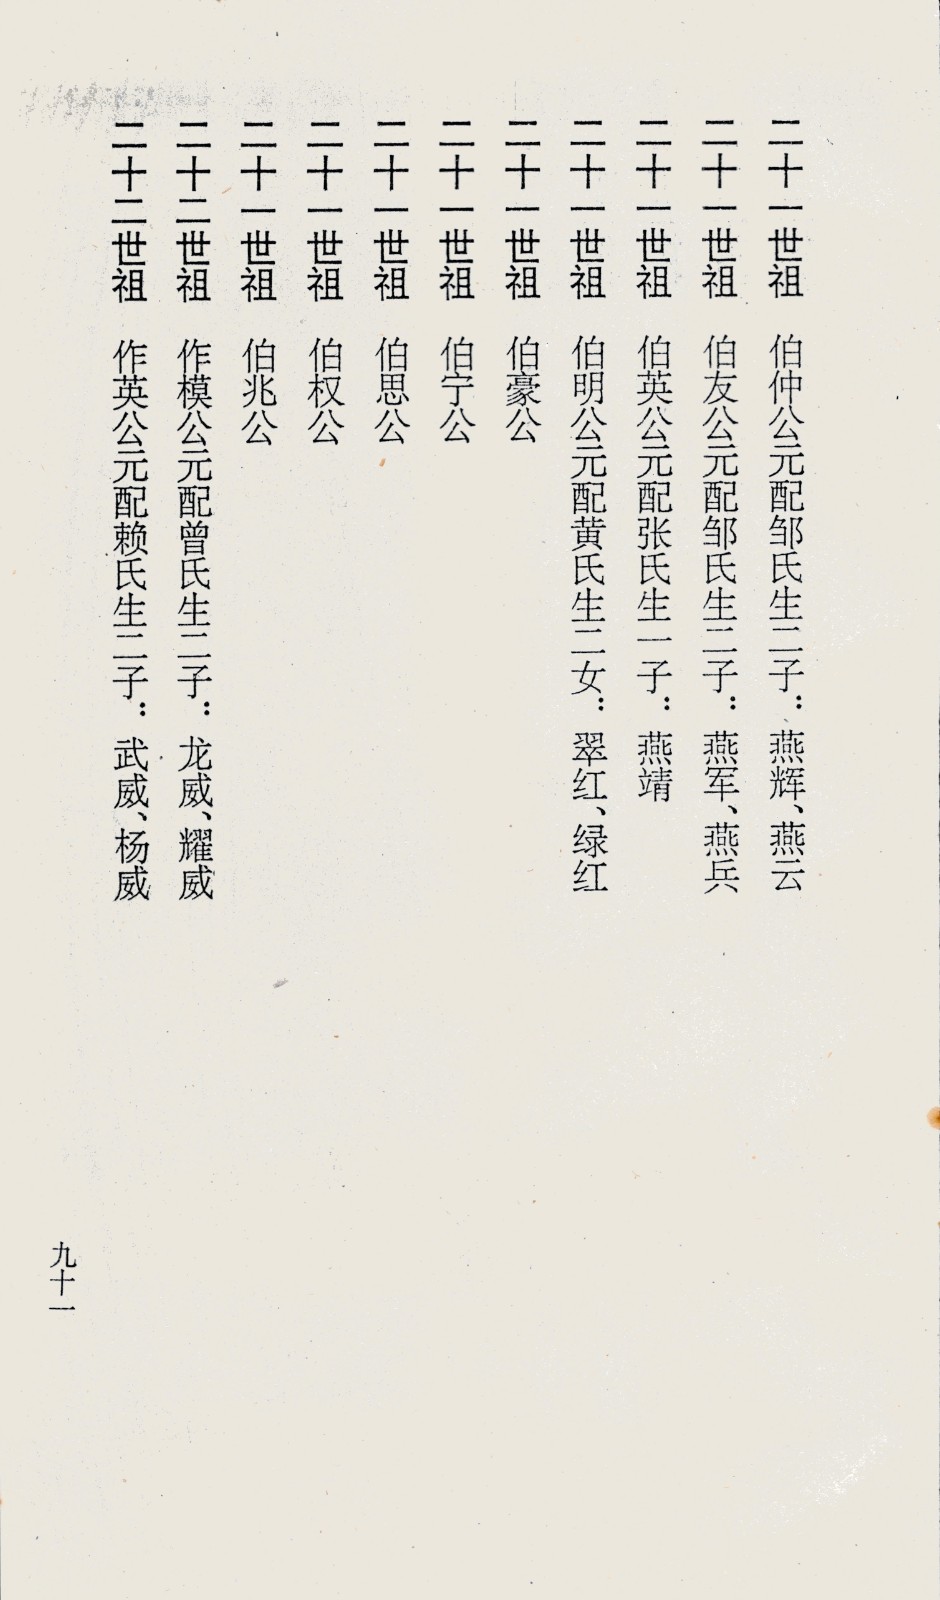 二十一世祖 伯仲公元配邹氏生二子：燕辉、燕云
二十一世祖 伯友公元配邹氏生二子：燕军、燕兵
二十一世祖 伯英公元配张氏生一子：燕靖
二十一世祖 伯明公元配黄氏生二女：翠红、绿红
二十一世祖 伯豪公
二十一世祖 伯宁公
二十一世祖 伯思公
二十一世祖 伯权公
二十一世祖 伯兆公
二十二世祖 作模公元配曾氏生二子：龙威、耀威
二十二世祖 作英公元配赖氏生二子：武威、杨威
九十一